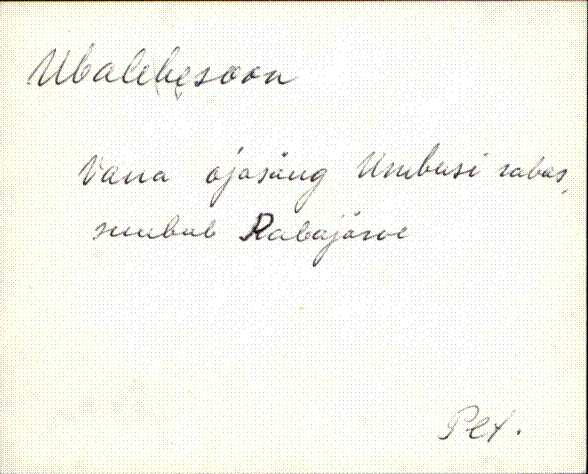 Ubalehesoon
Vana ojasäng Umbusi rabas,
suubub Rabajärve
Plt.